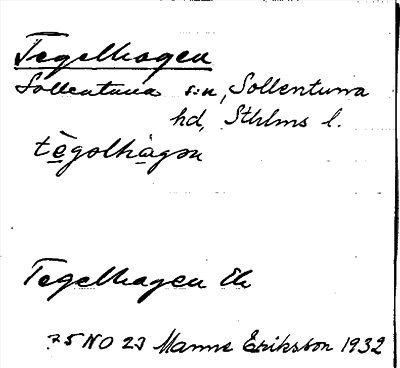 Tegelhagen
Sollentuna s:n, Sollentuna
hd, Sthlms l.
tègəlhàgən
Tegelhagen Ek
75 NO 23 Manne Eriksson 1932